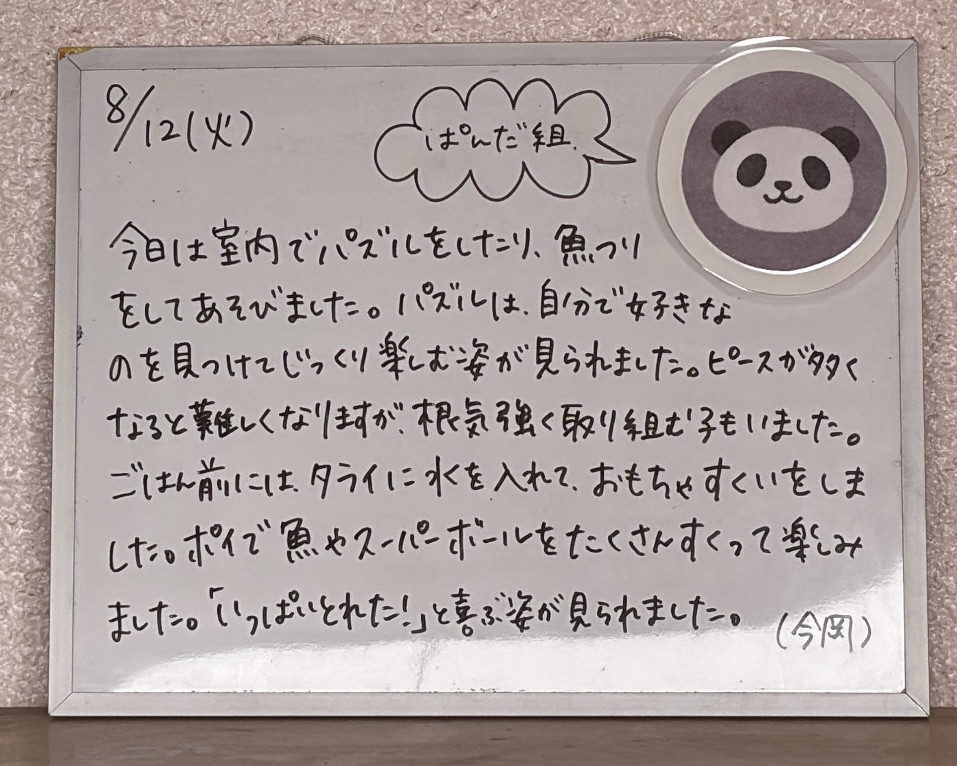 8/12(火)
ぱんだ組.
今日は室内でパズルをしたり、魚つり
をしてあそびました。パズルは、自分で好きな
のを見つけてじっくり楽しむ姿が見られました。ピースが多く
なると難しくなりますが、根気強く取り組む子もいました。
ごはん前には、タライに水を入れて、おもちゃすくいをしま
した。ポイで魚やスーパーボールをたくさんすくって楽しみ
ました。「いっぱいとれた!」と喜ぶ姿が見られました。
(今岡)